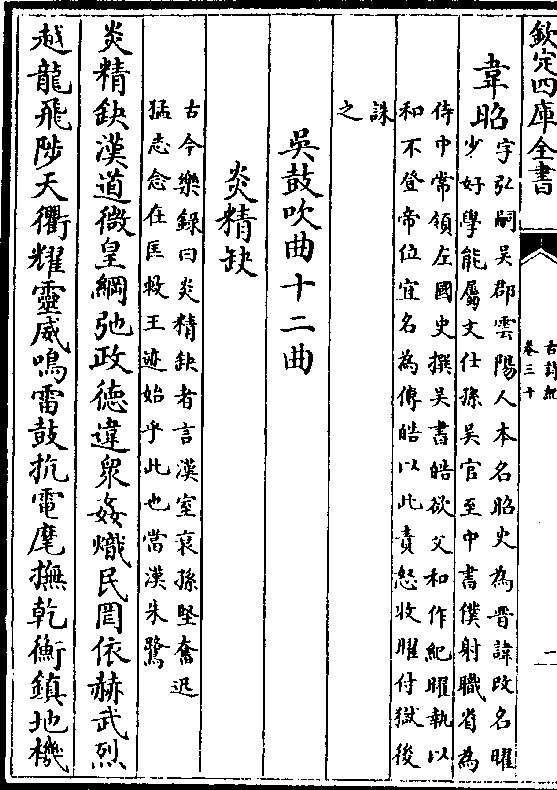 欽定四庫全書
古詩紀
卷三十
一
韋昭
字弘嗣吳郡雲陽人本名昭史為晉諱改名曜
少好學能屬文仕孫吳官至中書僕射職省為
侍中常領左國史撰吳書皓欲父和作紀曜執以
和不登帝位宜名為傳皓以此責怒收曜付獄後
誅
之
吳鼓吹曲十二曲
炎精缺
古今樂錄曰炎精缺者言漢室衰孫堅奮迅
猛志念在匡救王迹始乎此也當漢朱鷺
炎精缺漢道微皇綱弛政德違衆姦熾民罔依赫武烈
越龍飛陟天衢耀靈威鳴雷鼓抗電麾撫乾衡鎮地機